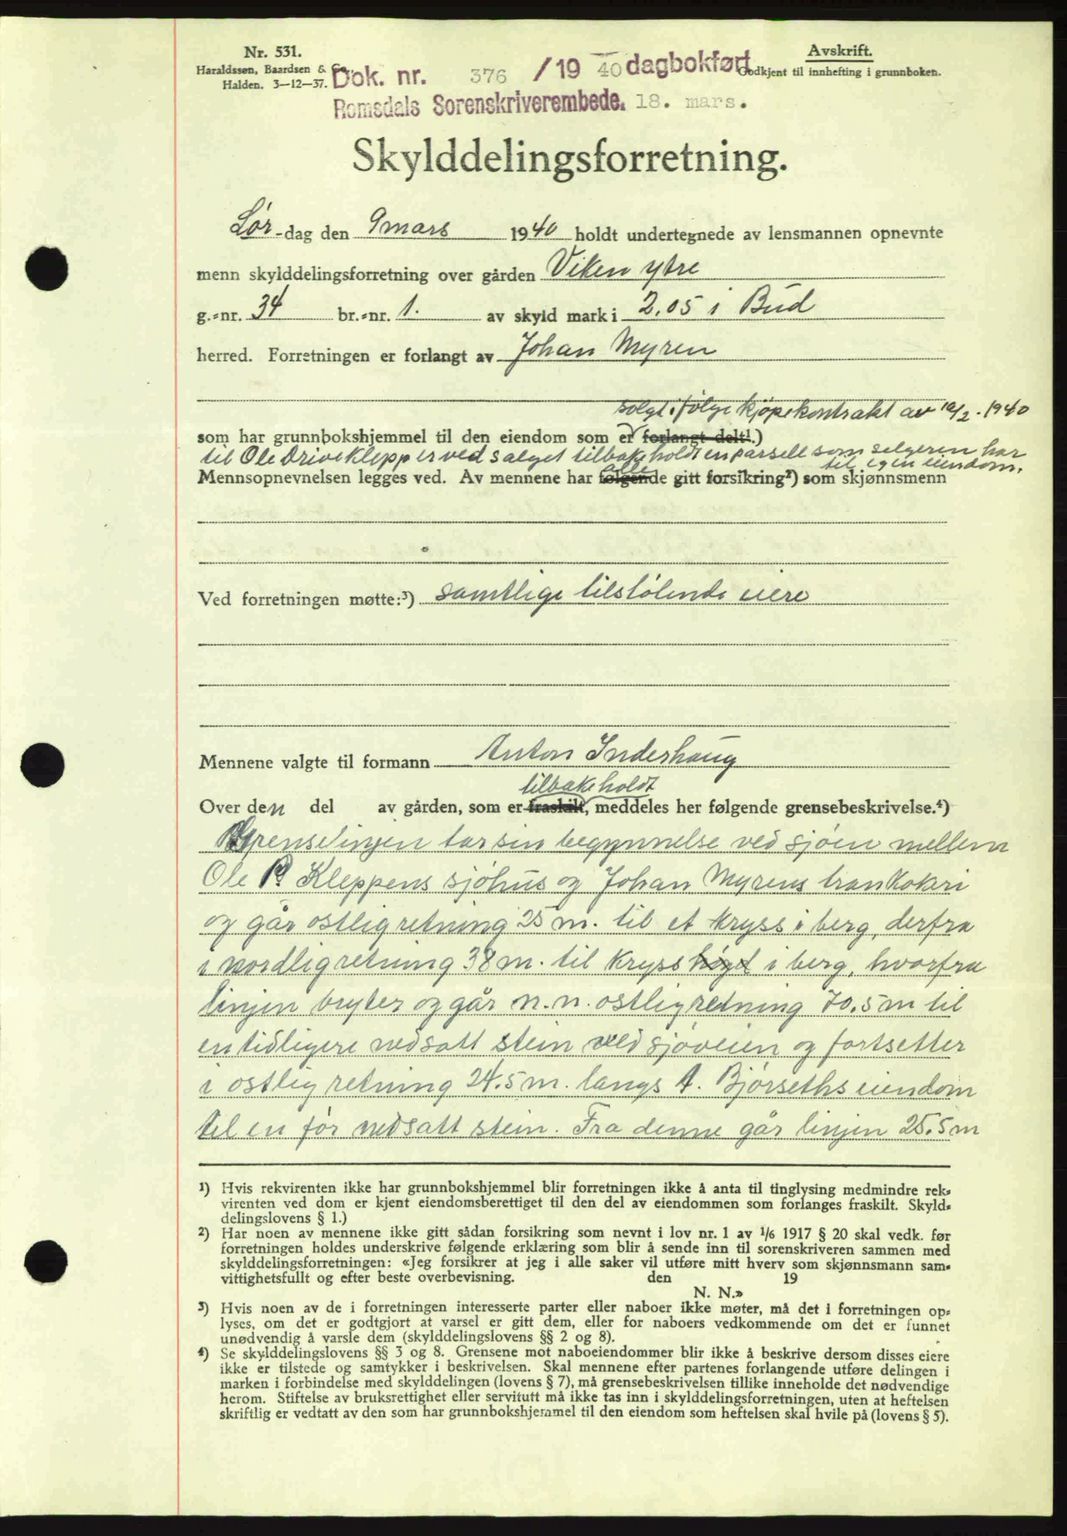 Nr. 531.
Haraldssøn, Baardsen & Co.
Halden. 3—12—37.
Avskrift.
Godkjent til innhefting i grunnboken.
Dok. nr. 376 / 19 40 dagbokført
Romsdals Sorenskriverembede. 18. mars.
Skylddelingsforretning.
Lør-dag den 9 mars 1940 holdt undertegnede av lensmannen opnevnte
menn skylddelingsforretning over gården Viken ytre
g.-nr. 34 br.-nr. 1. av skyld mark i 2.05 i Bud
herred. Forretningen er forlangt av Johan Myren
solgt ifølge kjøpekontrakt av 10/2. 1940
som har grunnbokshjemmel til den eiendom som er forlangt delt¹.)
til Ole Driveklepp er ved salget tilbakeholdt en parsell som selgeren har
til egen eiendom.
Mennsopnevnelsen legges ved. Av mennene har følgende gitt forsikring²) som skjønnsmenn
Ved forretningen møtte:³) samtlige tilstøtende eiere
Mennene valgte til formann Anton Inderhaug
tilbakeholdt
Over den del av gården, som er fraskilt, meddeles her følgende grensebeskrivelse.⁴)
Grenselinjen tar sin begynnelse ved sjøen mellem
Ole P. Kleppens sjøhus og Johan Myrens trankokeri
og går ostlig retning 25 m. til et kryss i berg, derfra
i nordlig retning 38 m. til kryss høgd i berg, hvorfra
linjen bryter og går n.n. ostlig retning 70.5 m til
en tidligere nedsatt stein ved sjøveien og fortsetter
i ostlig retning 24.5 m. langs A. Bjørseths eiendom
til en før nedsatt stein. Fra denne går linjen 25.5 m
¹) Hvis rekvirenten ikke har grunnbokshjemmel blir forretningen ikke å anta til tinglysing medmindre rek-
virenten ved dom er kjent eiendomsberettiget til den del av eiendommen som forlanges fraskilt. Skyld-
delingslovens § 1.)
²) Har noen av mennene ikke gitt sådan forsikring som nevnt i lov nr. 1 av ¹/₆ 1917 § 20 skal vedk. før
forretningen holdes underskrive følgende erklæring som blir å sende inn til sorenskriveren sammen med
skylddelingsforretningen: «Jeg forsikrer at jeg i alle saker vil utføre mitt hverv som skjønnsmann sam-
vittighetsfullt og efter beste overbevisning. den 19
N. N.»
³) Hvis noen av de i forretningen interesserte parter eller naboer ikke møter, må det i forretningen op-
lyses, om det er godtgjort at varsel er gitt dem, eller for naboers vedkommende om det er funnet
unødvendig å varsle dem (skylddelingslovens §§ 2 og 8).
⁴) Se skylddelingslovens §§ 3 og 8. Grensene mot naboeiendommer blir ikke å beskrive dersom disses eiere
ikke er tilstede og samtykker i beskrivelsen. Skal mennene efter partenes forlangende utføre delingen i
marken i forbindelse med skylddelingen (lovens § 7), må grensebeskrivelsen tillike inneholde det nødvendige
herom. Stiftelse av bruksrettighet eller servitutt må ikke tas inn i skylddelingsforretningen, uten at heftelsen
skriftlig er vedtatt av den som har grunnbokshjemmel til den eiendom som heftelsen skal hvile på (lovens § 5).